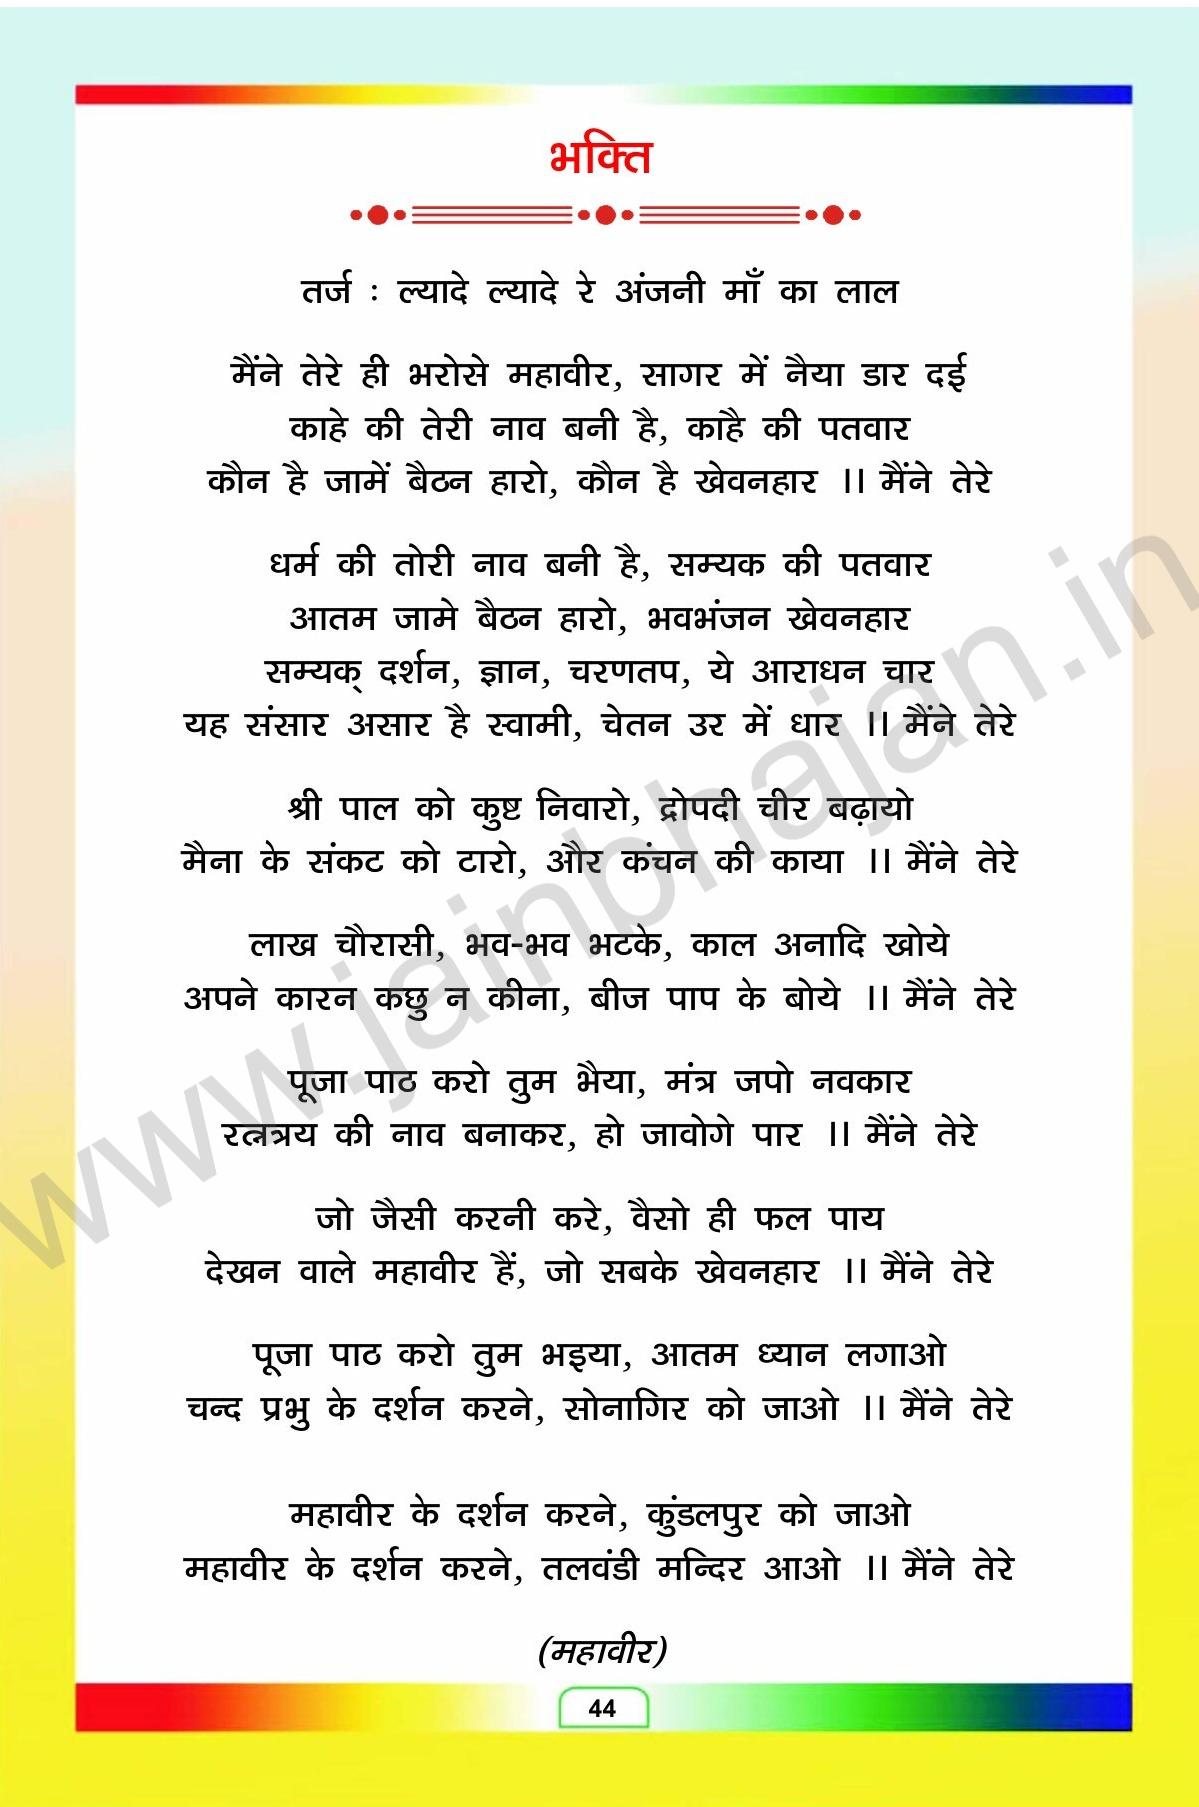 भक्ति
तर्ज : ल्यादे ल्यादे रे अंजनी माँ का लाल
मैंने तेरे ही भरोसे महावीर, सागर में नैया डार दई
काहे की तेरी नाव बनी है, काहै की पतवार
कौन है जामें बैठन हारो, कौन है खेवनहार ।। मैंने तेरे
धर्म की तोरी नाव बनी है, सम्यक की पतवार
आतम जामे बैठन हारो, भवभंजन खेवनहार
सम्यक् दर्शन, ज्ञान, चरणतप, ये आराधन चार
यह संसार असार है स्वामी, चेतन उर में धार ।। मैंने तेरे
श्री पाल को कुष्ट निवारो, द्रोपदी चीर बढ़ायो
मैना के संकट को टारो, और कंचन की काया ।। मैंने तेरे
लाख चौरासी, भव-भव भटके, काल अनादि खोये
अपने कारन कछु न कीना, बीज पाप के बोये ।। मैंने तेरे
पूजा पाठ करो तुम भैया, मंत्र जपो नवकार
रत्नत्रय की नाव बनाकर, हो जावोगे पार ।। मैंने तेरे
जो जैसी करनी करे, वैसो ही फल पाय
देखन वाले महावीर हैं, जो सबके खेवनहार ।। मैंने तेरे
पूजा पाठ करो तुम भइया, आतम ध्यान लगाओ
चन्द प्रभु के दर्शन करने, सोनागिर को जाओ ।। मैंने तेरे
महावीर के दर्शन करने, कुंडलपुर को जाओ
महावीर के दर्शन करने, तलवंडी मन्दिर आओ ।। मैंने तेरे
(महावीर)
44
www.jainbhajan.in